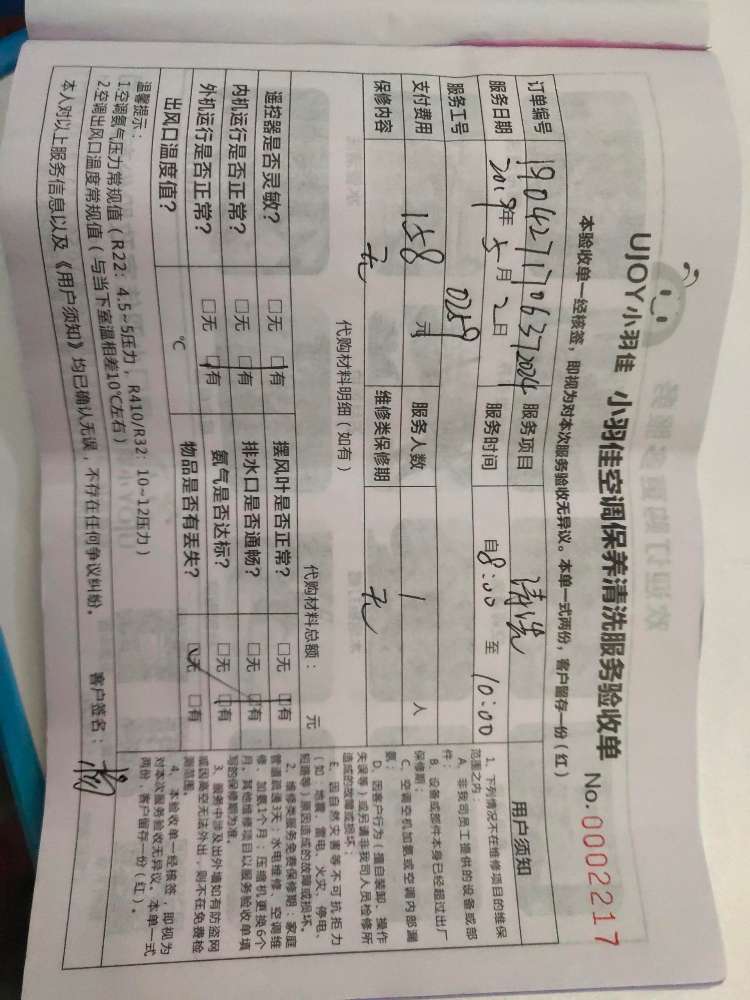 UJOY小羽佳 小羽佳空调保养清洗服务验收单 No.0002217
本验收单一经核签，即视为对本次服务验收无异议。本单一式两份，客户留存一份（红）
订单编号 服务项目 清洗
服务日期 2019年5月2日 服务时间 自8:00至10:00
服务工号 0259
支付费用 158元 服务人数 1人
保修内容 无 维修类保修期 无
代购材料明细（如有） 代购材料总额： 元
遥控器是否灵敏？ □无 □有 摆风叶是否正常？ □无 □有
内机运行是否正常？ □无 □有 排水口是否通畅？ □无 □有
外机运行是否正常？ □无 □有 氨气是否达标？ □无 □有
出风口温度值？ ℃ 物品是否有丢失？ □无 □有
温馨提示：
1.空调氨气压力常规值（R22：4.5~5压力，R410/R32：10~12压力）
2.空调出风口温度常规值（与当下室温相差10℃左右）
本人对以上服务信息以及《用户须知》均已确认无误，不存在任何争议纠纷。 客户签名：杨
用户须知
1、下列情况不在维修项目的维保
范围之内：
A、非我司员工提供的设备或部
件；
B、设备或部件本身已经超过出厂
保修期；
C、空调空机加氨或空调内部漏
氨；
D、因客户行为（擅自装卸、操作
失误等）或另请非我司人员检修所
造成的故障或损坏
E、因自然灾害等不可抗拒力
（如：地震、雷电、火灾、停电、
短路等）原因造成的故障或损坏。
2、维修类服务免费保修期：家庭
管道疏通3天；水电维修、空调维
修、加氨1个月；压缩机更换6个
月，其他维修项目以服务验收单填
写的保修期为准。
3、服务中涉及出外墙如有防盗网
或因高空无法外出，则不在免费检
测范围。
4、本验收单一经核签，即视为
对本次服务验收无异议。本单一式
两份，客户留存一份（红）。